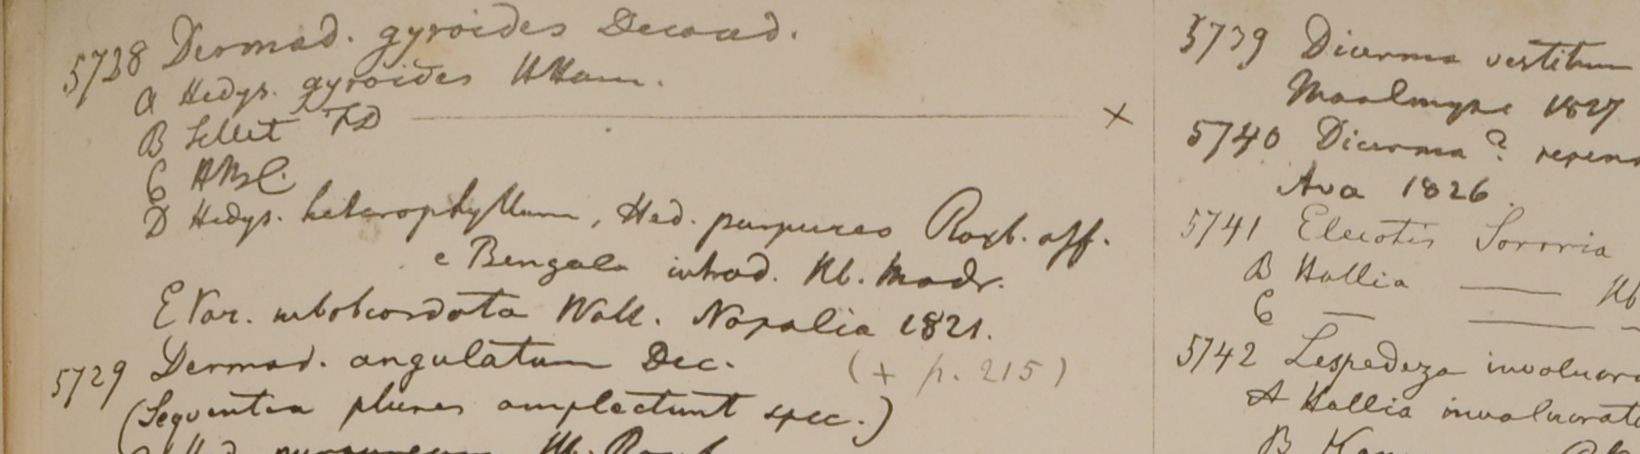 5728 Dermad. gyroides Decand.
A Hedys. gyroides HHam.
B Sillet FD
C HBC.
D Hedys. heterophyllum, Hed. purpureo Roxb. aff.
e Bengala introd. Hb. Madr.
E Var. subobcordata Wall. Napalia 1821.
5729 Dermad. angulatum Dec. (+ p. 215)
(Sequentia plures amplectunt spec.)
Hb. Roxb
×
5739 Dicerma vestitum
Moalmyne 1827
5740 Dicerma? repens
Ava 1826.
5741 Eleiotis Sororia
B Hallia —— Hb
C — ——
5742 Lespedeza involucra
A Hallia involucrata
B